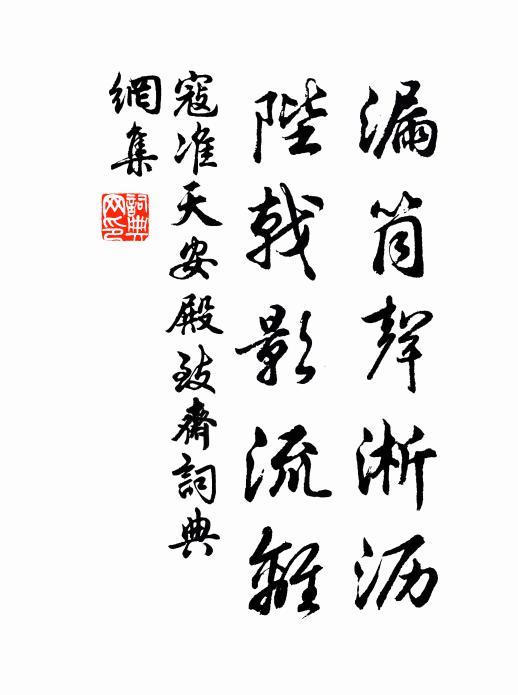 漏筒聲淅沥
陛戟影流離
寇准天安殿致齋詞典
網集
詞典网印